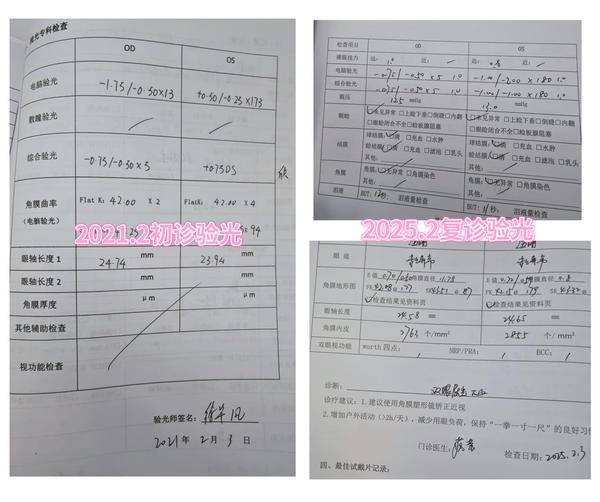 视光专科检查
OD OS
电脑验光 -1.75/-0.50×13 +0.50/-0.25×173
散瞳验光
综合验光 -0.75/-0.50×5 +0.75DS
角膜曲率 Flat K: 42.00 × 2 Flat K: 42.00 × 4
(电脑验光)
2021.2初诊验光
眼轴长度 1 24.74 mm 23.94 mm
眼轴长度 2 mm mm
角膜厚度 μm μm
其他辅助检查
视功能检查
验光师签名:
2021 年 2 月 3 日
检查项目 OD OS
裸眼视力 远: 1.0 近: 远: 0.8 近:
电脑验光 -0.75/-0.50×5 1.0 -1.00/-2.00×180 1.0
综合验光 -0.75/-0.50×5 1.0 -1.00/-1.00×180 1.0
眼压 12.5 mmHg 13.0 mmHg
眼睑 未见异常 上睑下垂 倒睫 内翻 未见异常 上睑下垂 倒睫 内翻
眼睑闭合不全 睑板腺阻塞 眼睑闭合不全 睑板腺阻塞
结膜 球结膜: 清 充血 水肿 球结膜: 清 充血 水肿
睑结膜: 清 充血 滤泡 乳头 睑结膜: 清 充血 滤泡 乳头
其他: 其他:
角膜 角膜: 无异常 角膜染色 角膜: 无异常 角膜染色
其他: 其他:
泪液 BUT: 12秒; 泪液量检查 BUT: 11秒; 泪液量检查
2025.2复诊验光
眼底
角膜地形图 E值 角膜直径 11.78 E值 角膜直径
检查结果见资料页 检查结果见资料页
眼轴长度 24.58 mm 24.65 mm
角膜内皮 2763 个/mm² 2855 个/mm²
双眼视功能 worth四点: NRP/PRA: BCC:
诊断:
诊疗建议: 1.建议使用角膜塑形镜矫正近视
2.增加户外活动(>2h/天), 减少用眼负荷, 保持“一拳一寸一尺”的良好习惯
门诊医生: 检查日期: 2025.2.3
四、最佳试戴片记录: